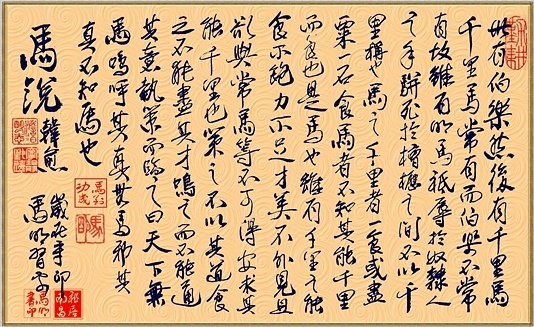 世有伯樂然後有千里馬
千里馬常有而伯樂不常
有故雖有名馬祇辱於奴隸人
之手駢死於槽櫪之間不以千
里稱也馬之千里者一食或盡
粟一石食馬者不知其能千里
而食也是馬也雖有千里之能
食不飽力不足才美不外見且
欲與常馬等不可得安求其
能千里也策之不以其道食
之不能盡其才鳴之而不能通
其意執策而臨之曰天下無
馬嗚呼其真無馬邪其
真不知馬也
馬說
韓愈
馬到功成
歲在辛卯